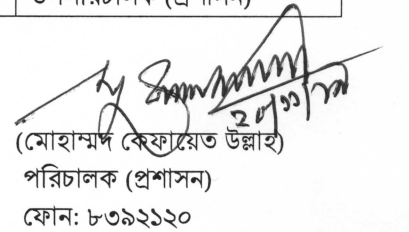 (মোহাম্মদ কেফায়েত উল্লাহ)
পরিচালক (প্রশাসন)
ফোন: ৮৩৯২১২০